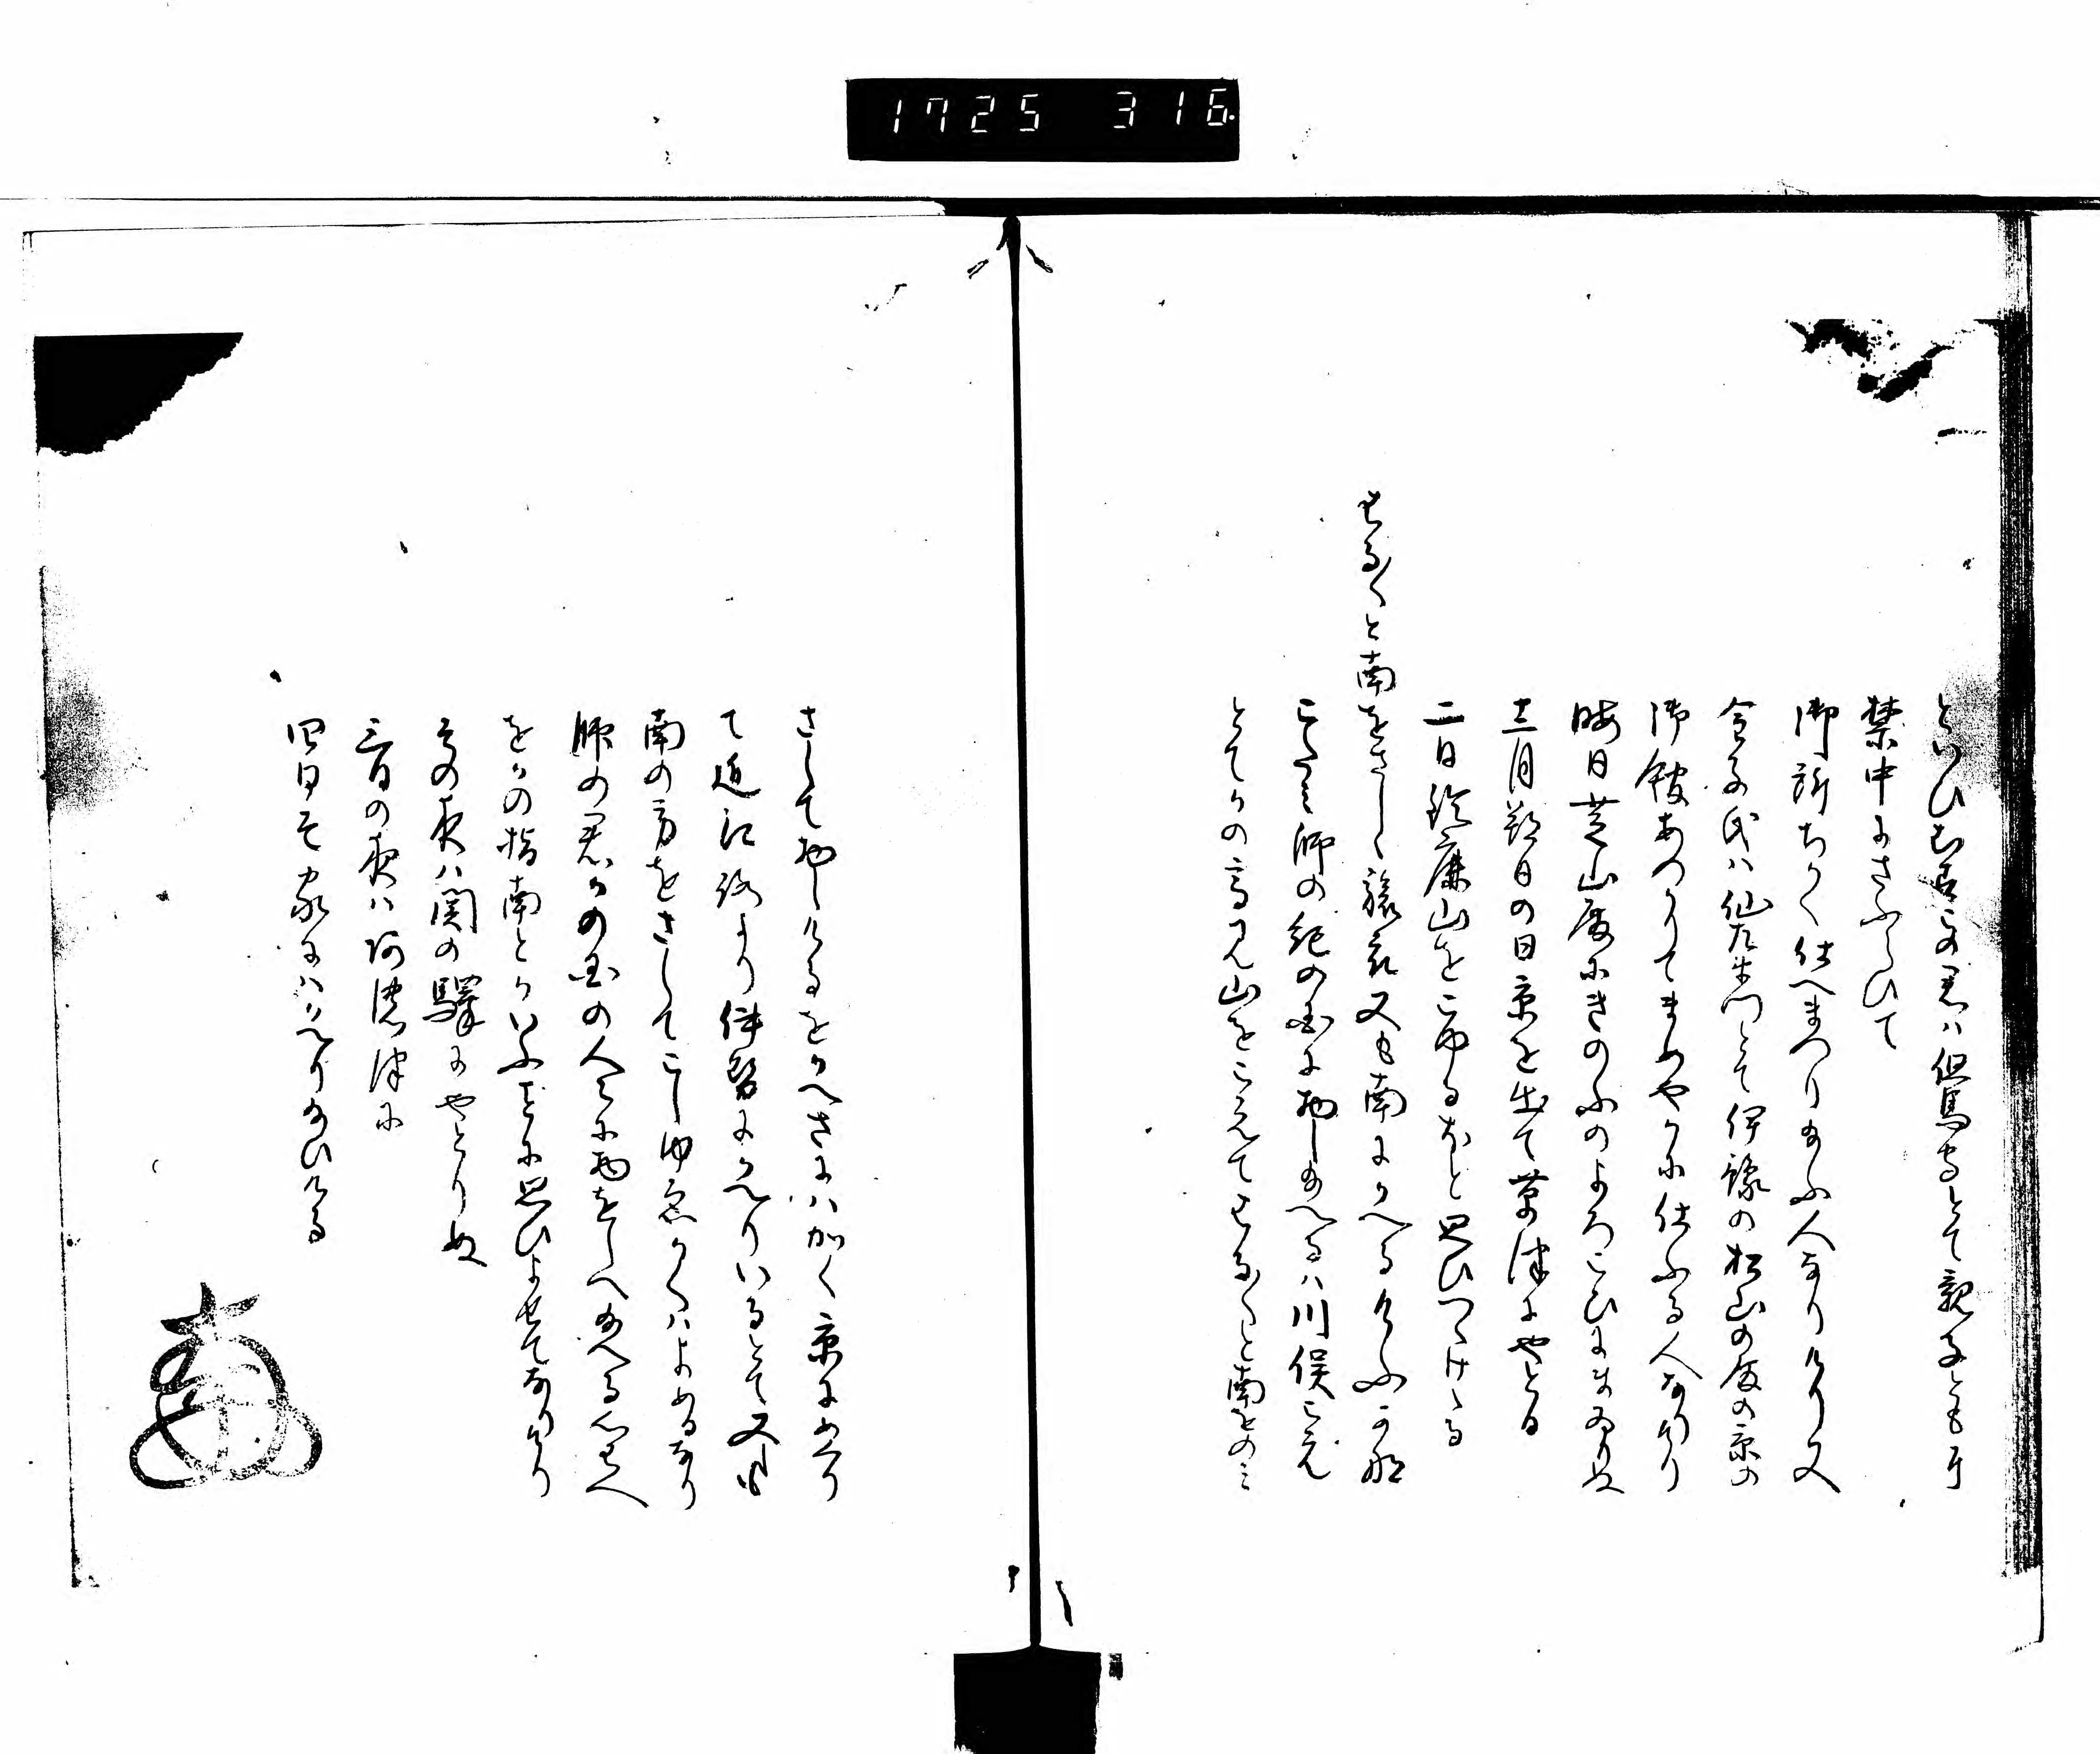 1725 316
といひ此君の君ハ但馬守とて親子とも
禁中にさふらひて
御所ちかく仕へまつり給ふ人なりけり又
金子氏ハ仙左衛門とて伊豫の松山の殿の京の
御館あつかりてまめやかに仕ふる人なりけり
晦日芝山殿にきのふのよろこひにまゐりぬ
十一月朔日の日京を出て草津にやとる
二日鈴鹿山をこゆるほと思ひつゝける
はる〳〵と南をさしし旅衣又も南にかへるけふかな
こたみ師の紀の国に物し給へるハ川俣こえ
とてかの高見山をこえてはる〳〵と南をのみ
さして物しけるをかへさにハかく京にめくり
て近江路より伊勢にかへりいるとて又も
南の方をさしてこしゆゑかくハよめるなり
師の君かの国の人々に物をしへ給へる心はへ
をかの指南とかいふことに思ひよせてなりけり
その夜ハ関の驛にやとりぬ
三日の夜ハ阿濃津に
四日そ家にハかへり給ひける